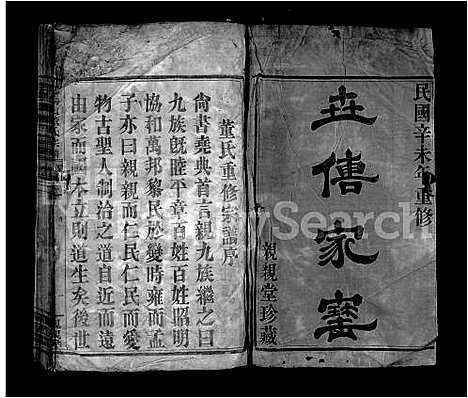 民國辛未年重修
世傳家寶
親親堂珍藏
董氏重修宗譜序
尙書堯典首言親九族繼之曰
九族旣睦平章百姓百姓昭明
協和萬邦黎民於變時雍而孟
子亦曰親親而仁民仁民而愛
物古聖人制治之道自近而遠
由家而國本立則道生矣後世